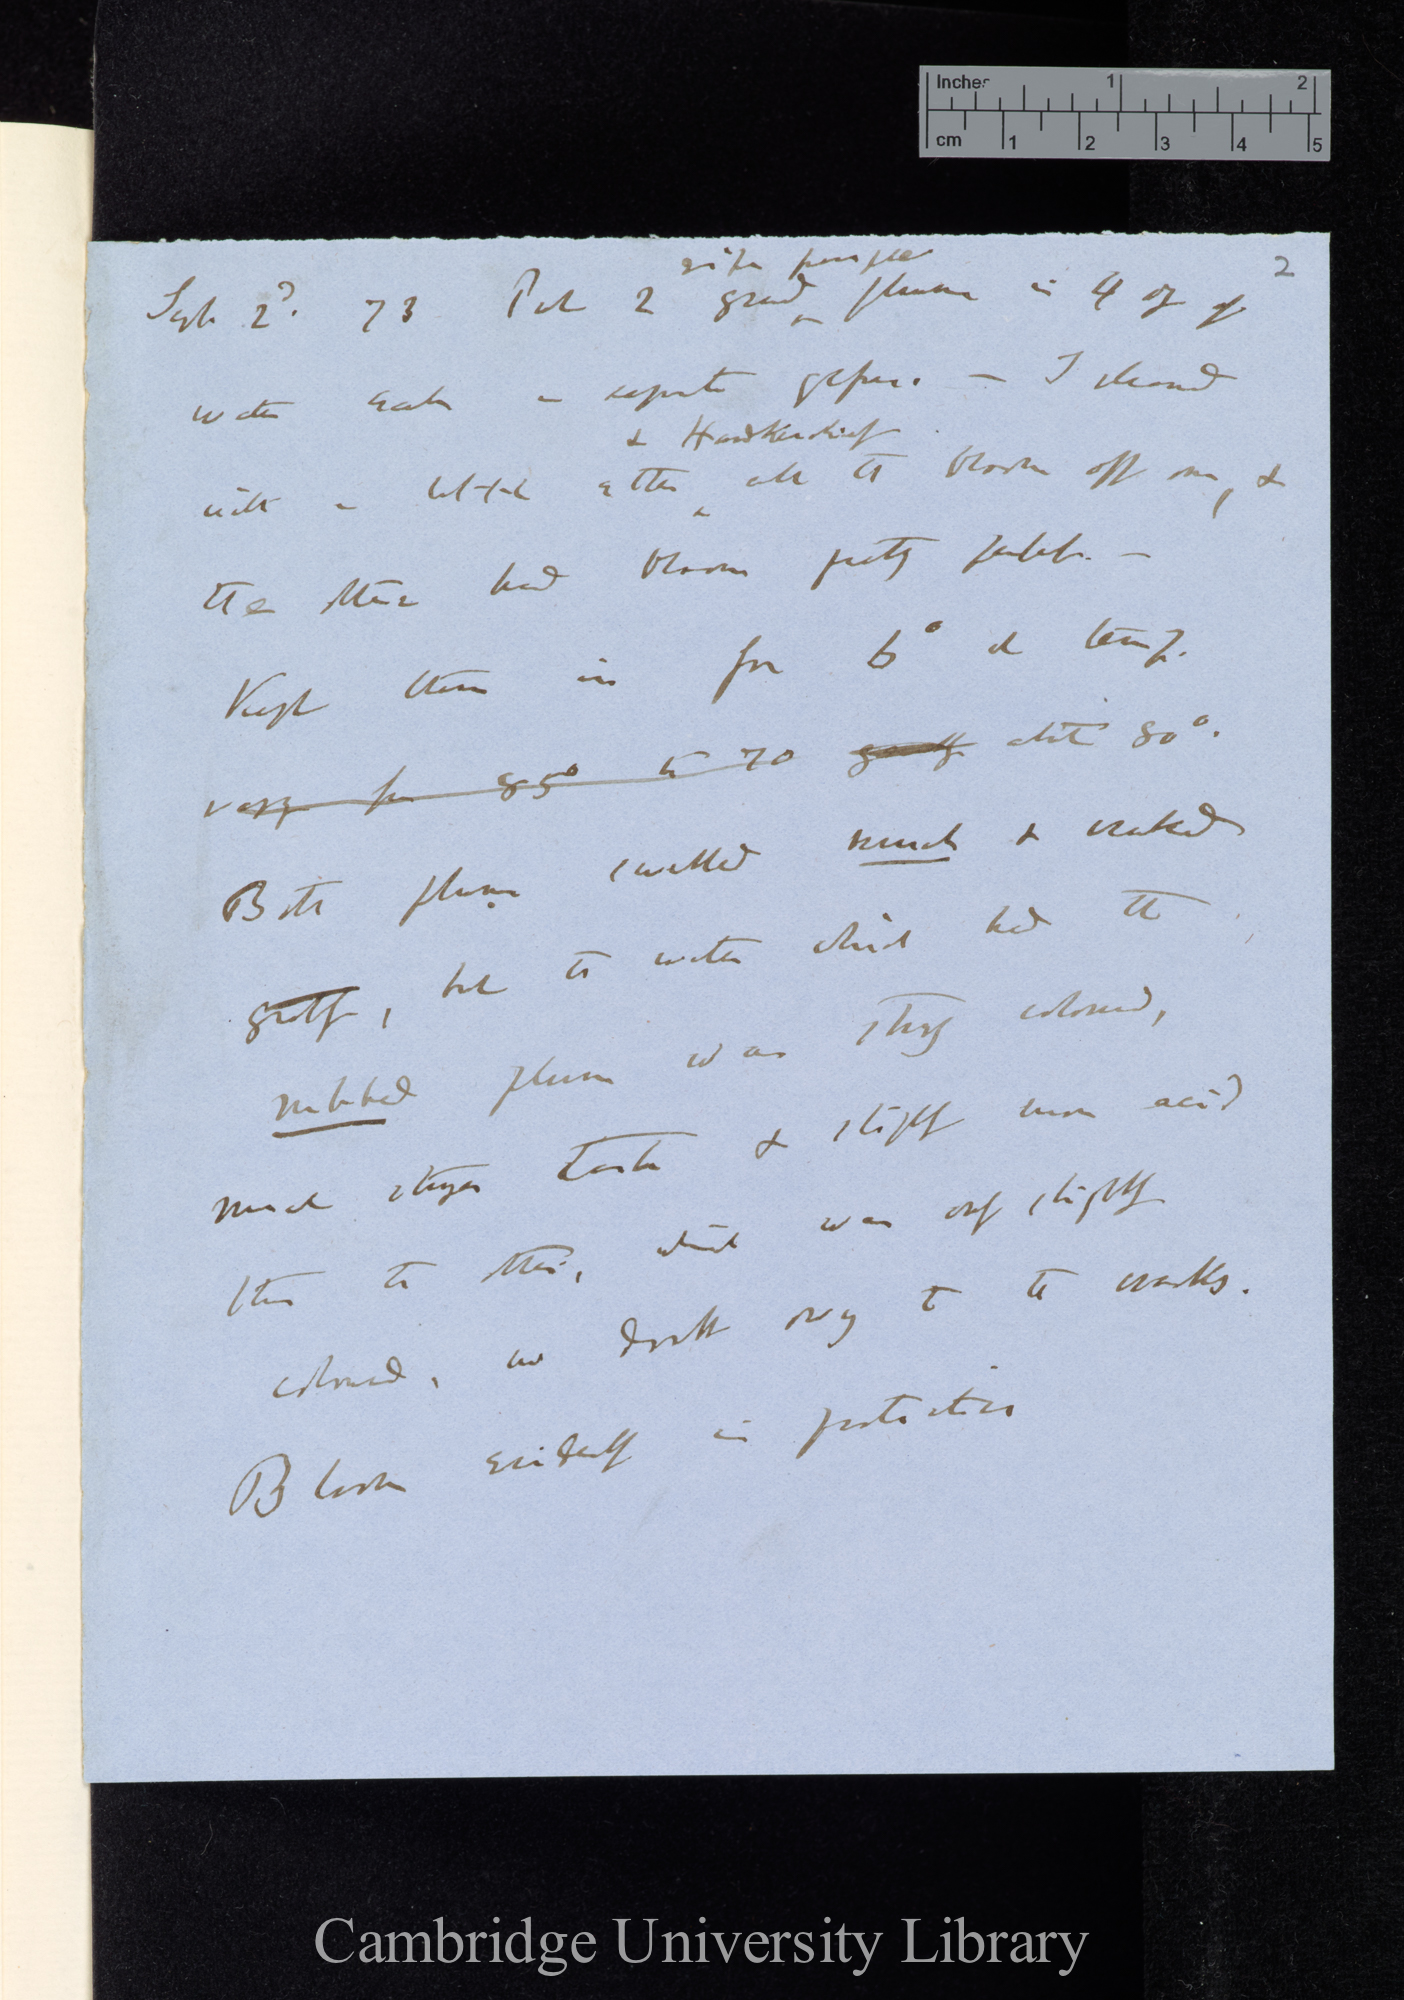 Inches 1 2
cm 1 2 3 4 5
2
ripe purple
Sept 2d. 73 Put 2 grand ^ plums in 4 oz of
water each in separate glasses. — I cleaned
& Handkerchief
with a little ether ^ all the bloom off one, &
the other had bloom pretty perfect. —
Kept them in for 6° at temp.
vary from 85° to 70 about 80°.
Both plums swelled much & cracked
greatly, but the water which had the
rubbed plum was strongly coloured,
much stronger taste & slightly more acid
than the other, which was only slightly
coloured, no doubt owing to the cracks.
Bloom evidently is protection
Cambridge University Library